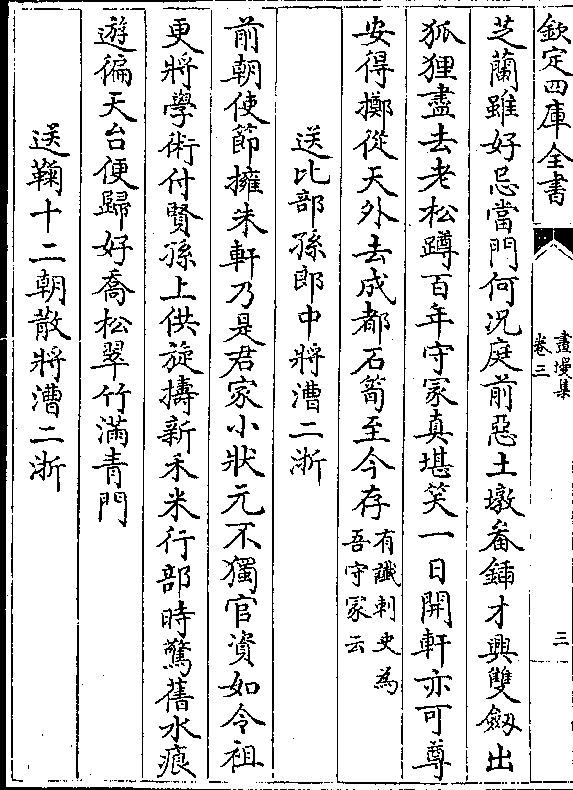 欽定四庫全書
畫墁集
卷三
三
芝蘭雖好忌當門何況庭前惡土墩畚鍤才興雙劔出
狐狸盡去老松蹲百年守冡真堪笑一日開軒亦可尊
安得擲從天外去成都石筍至今存有讖刺史為
吾守冡云
送比部孫郎中將漕二浙
前朝使節擁朱軒乃是君家小狀元不獨官資如令祖
更將學術付賢孫上供旋擣新禾米行部時驚舊水痕
遊徧天台便歸好喬松翠竹滿青門
送鞠十二朝散將漕二浙